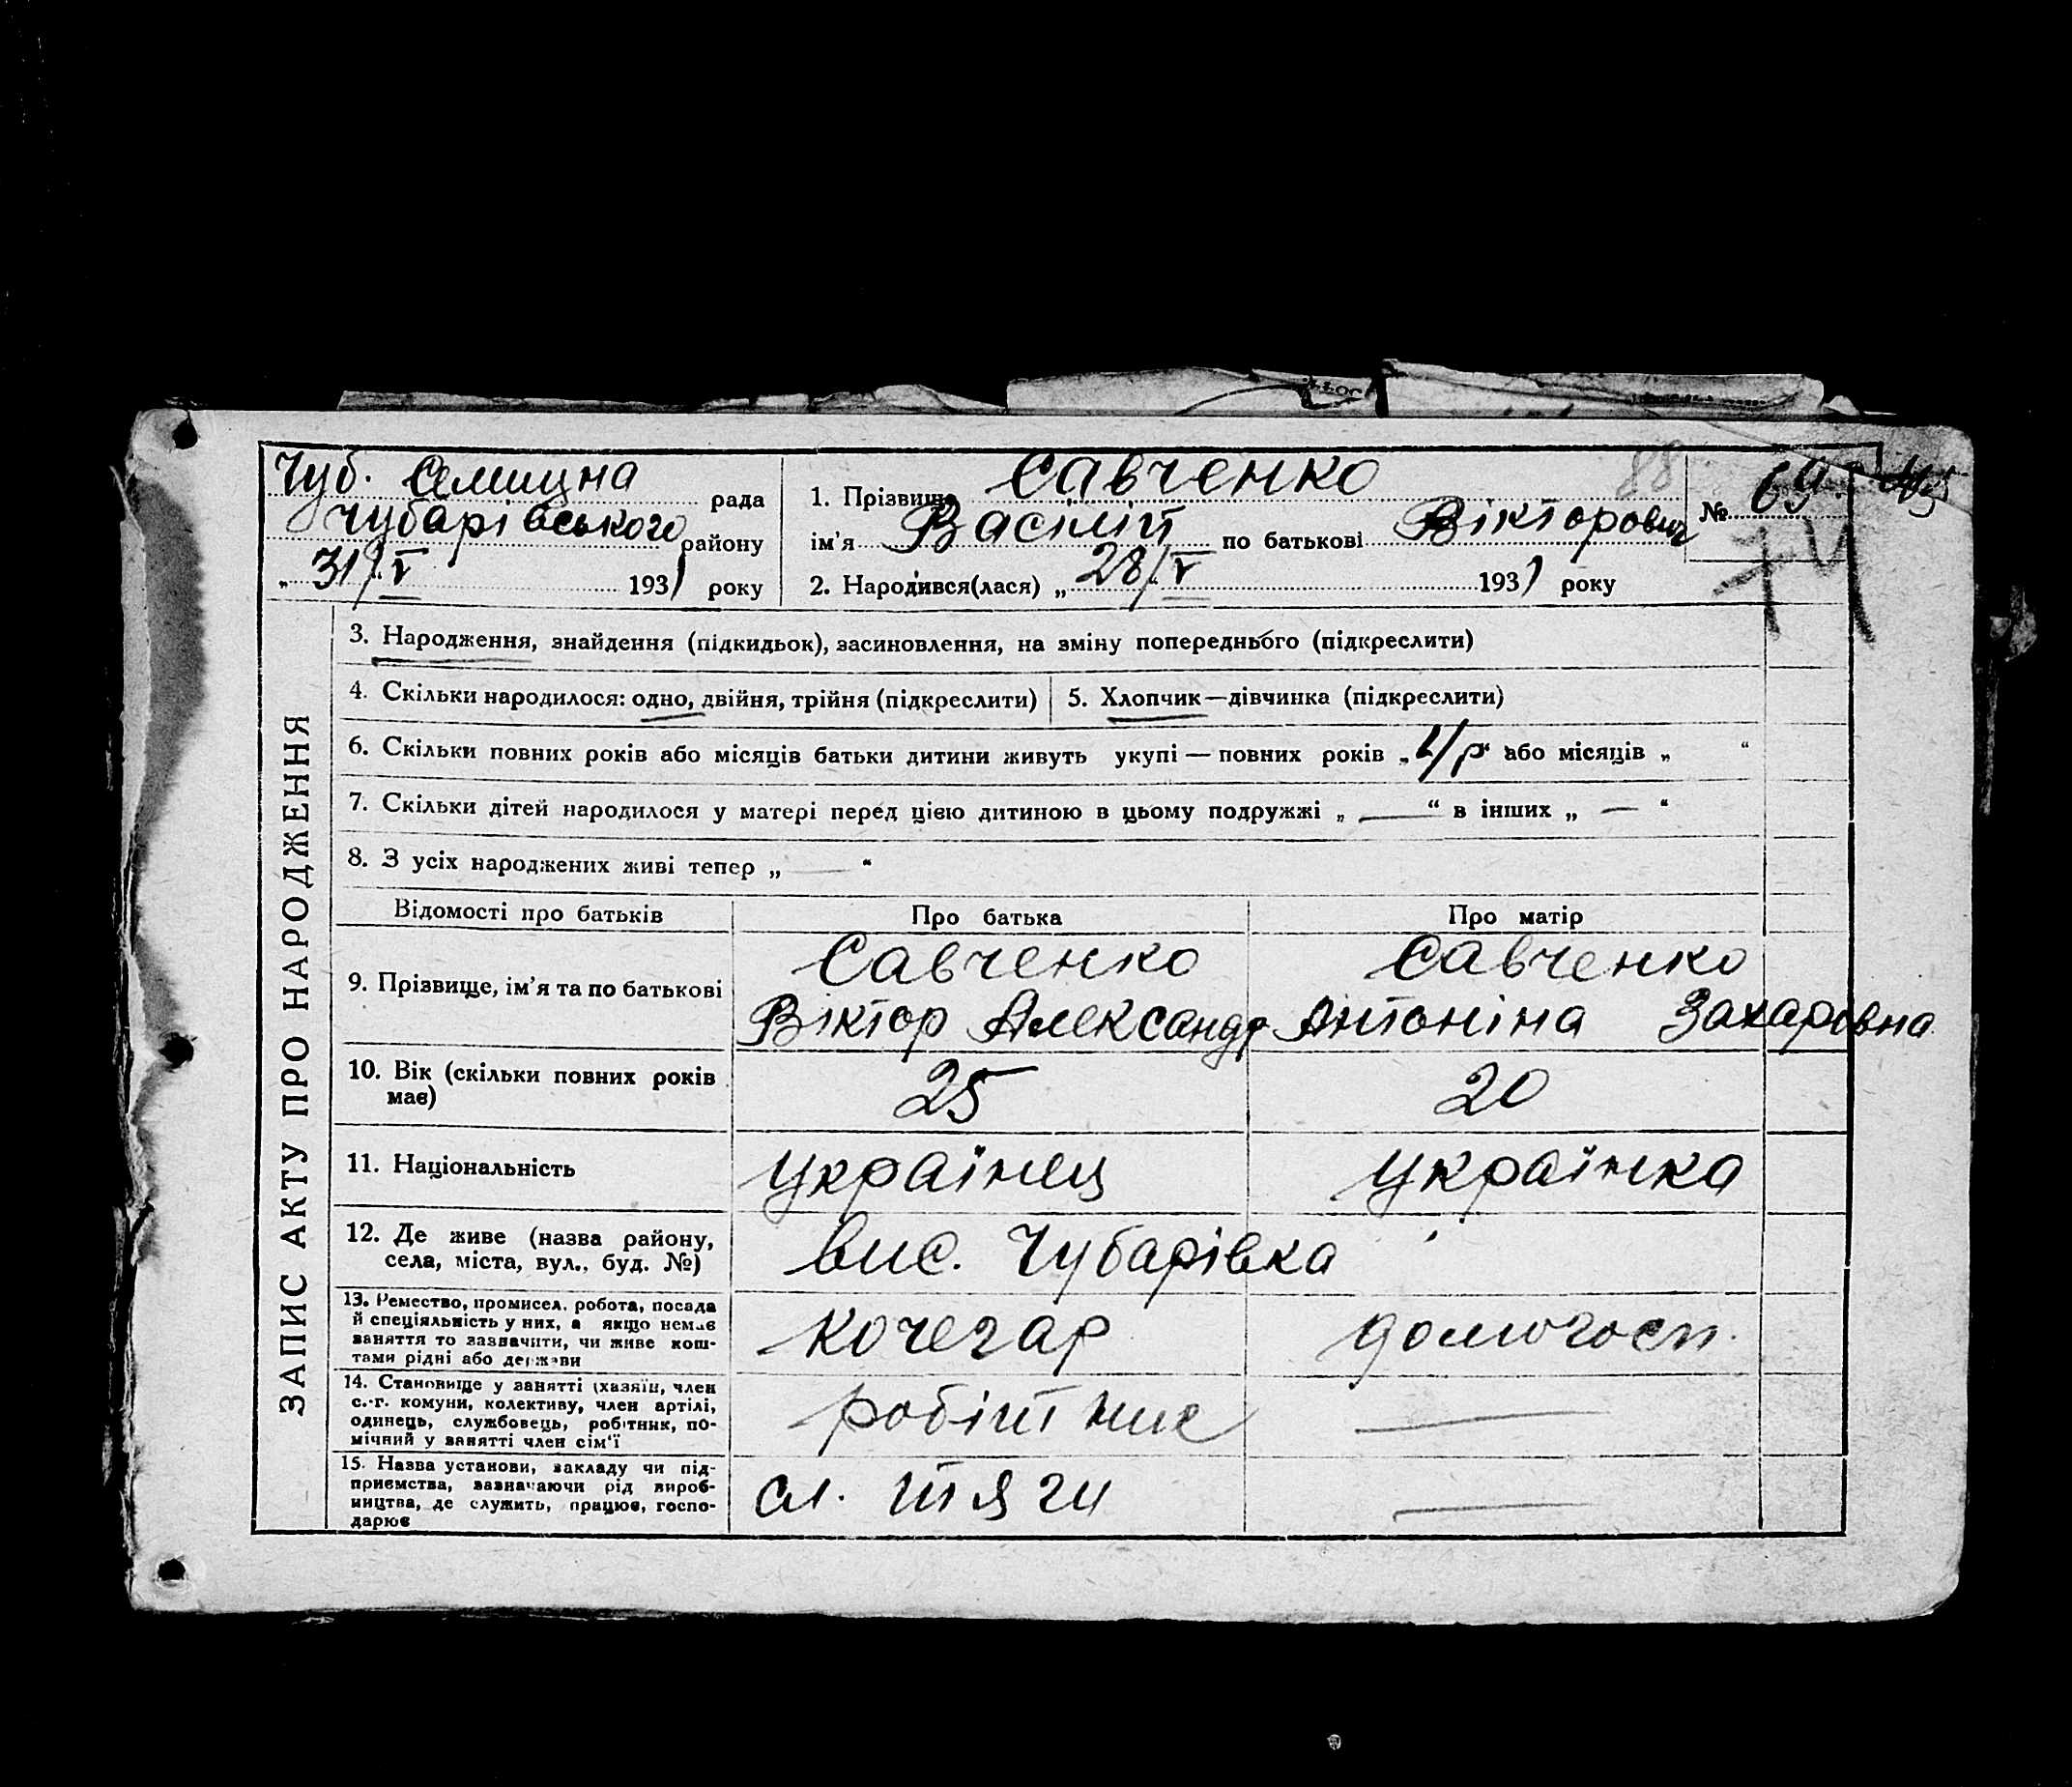 Чуб. Селищна рада
Чубарівського району
„ 31/V 1931 року
1. Прізвище Савченко
ім'я Василій по батькові Вікторович
2. Народився(лася) „ 28/V 1931 року
88
№ 69
74
ЗАПИС АКТУ ПРО НАРОДЖЕННЯ
3. Народження, знайдення (підкидьок), засиновлення, на зміну попереднього (підкреслити)
4. Скільки народилося: одно, двійня, трійня (підкреслити) 5. Хлопчик—дівчинка (підкреслити)
6. Скільки повних років або місяців батьки дитини живуть укупі — повних років „ 1/р “ або місяців „ “
7. Скільки дітей народилося у матері перед цією дитиною в цьому подружжі „ — “ в інших „ — “
8. З усіх народжених живі тепер „ — “
Відомості про батьків Про батька Про матір
9. Прізвище, ім'я та по батькові
Савченко
Віктор Александр
Савченко
Антоніна Захаровна
10. Вік (скільки повних років
має)
25
20
11. Національність
українец
українка
12. Де живе (назва району,
села, міста, вул., буд. №)
вис. Чубарівка
13. Ремество, промисел, робота, посада
й спеціяльність у них, а якщо немає
заняття то зазначити, чи живе кош-
тами рідні або держави
кочегар
домогосп.
14. Становище у занятті (хазяїн, член
с.-г. комуни, колективу, член артілі,
одинець, службовець, робітник, по-
мічний у занятті член сім'ї
робітник
—
15. Назва установи, закладу чи під-
приємства, зазначаючи рід вироб-
ництва, де служить, працює, госпо-
дарює
сл. тяги
—